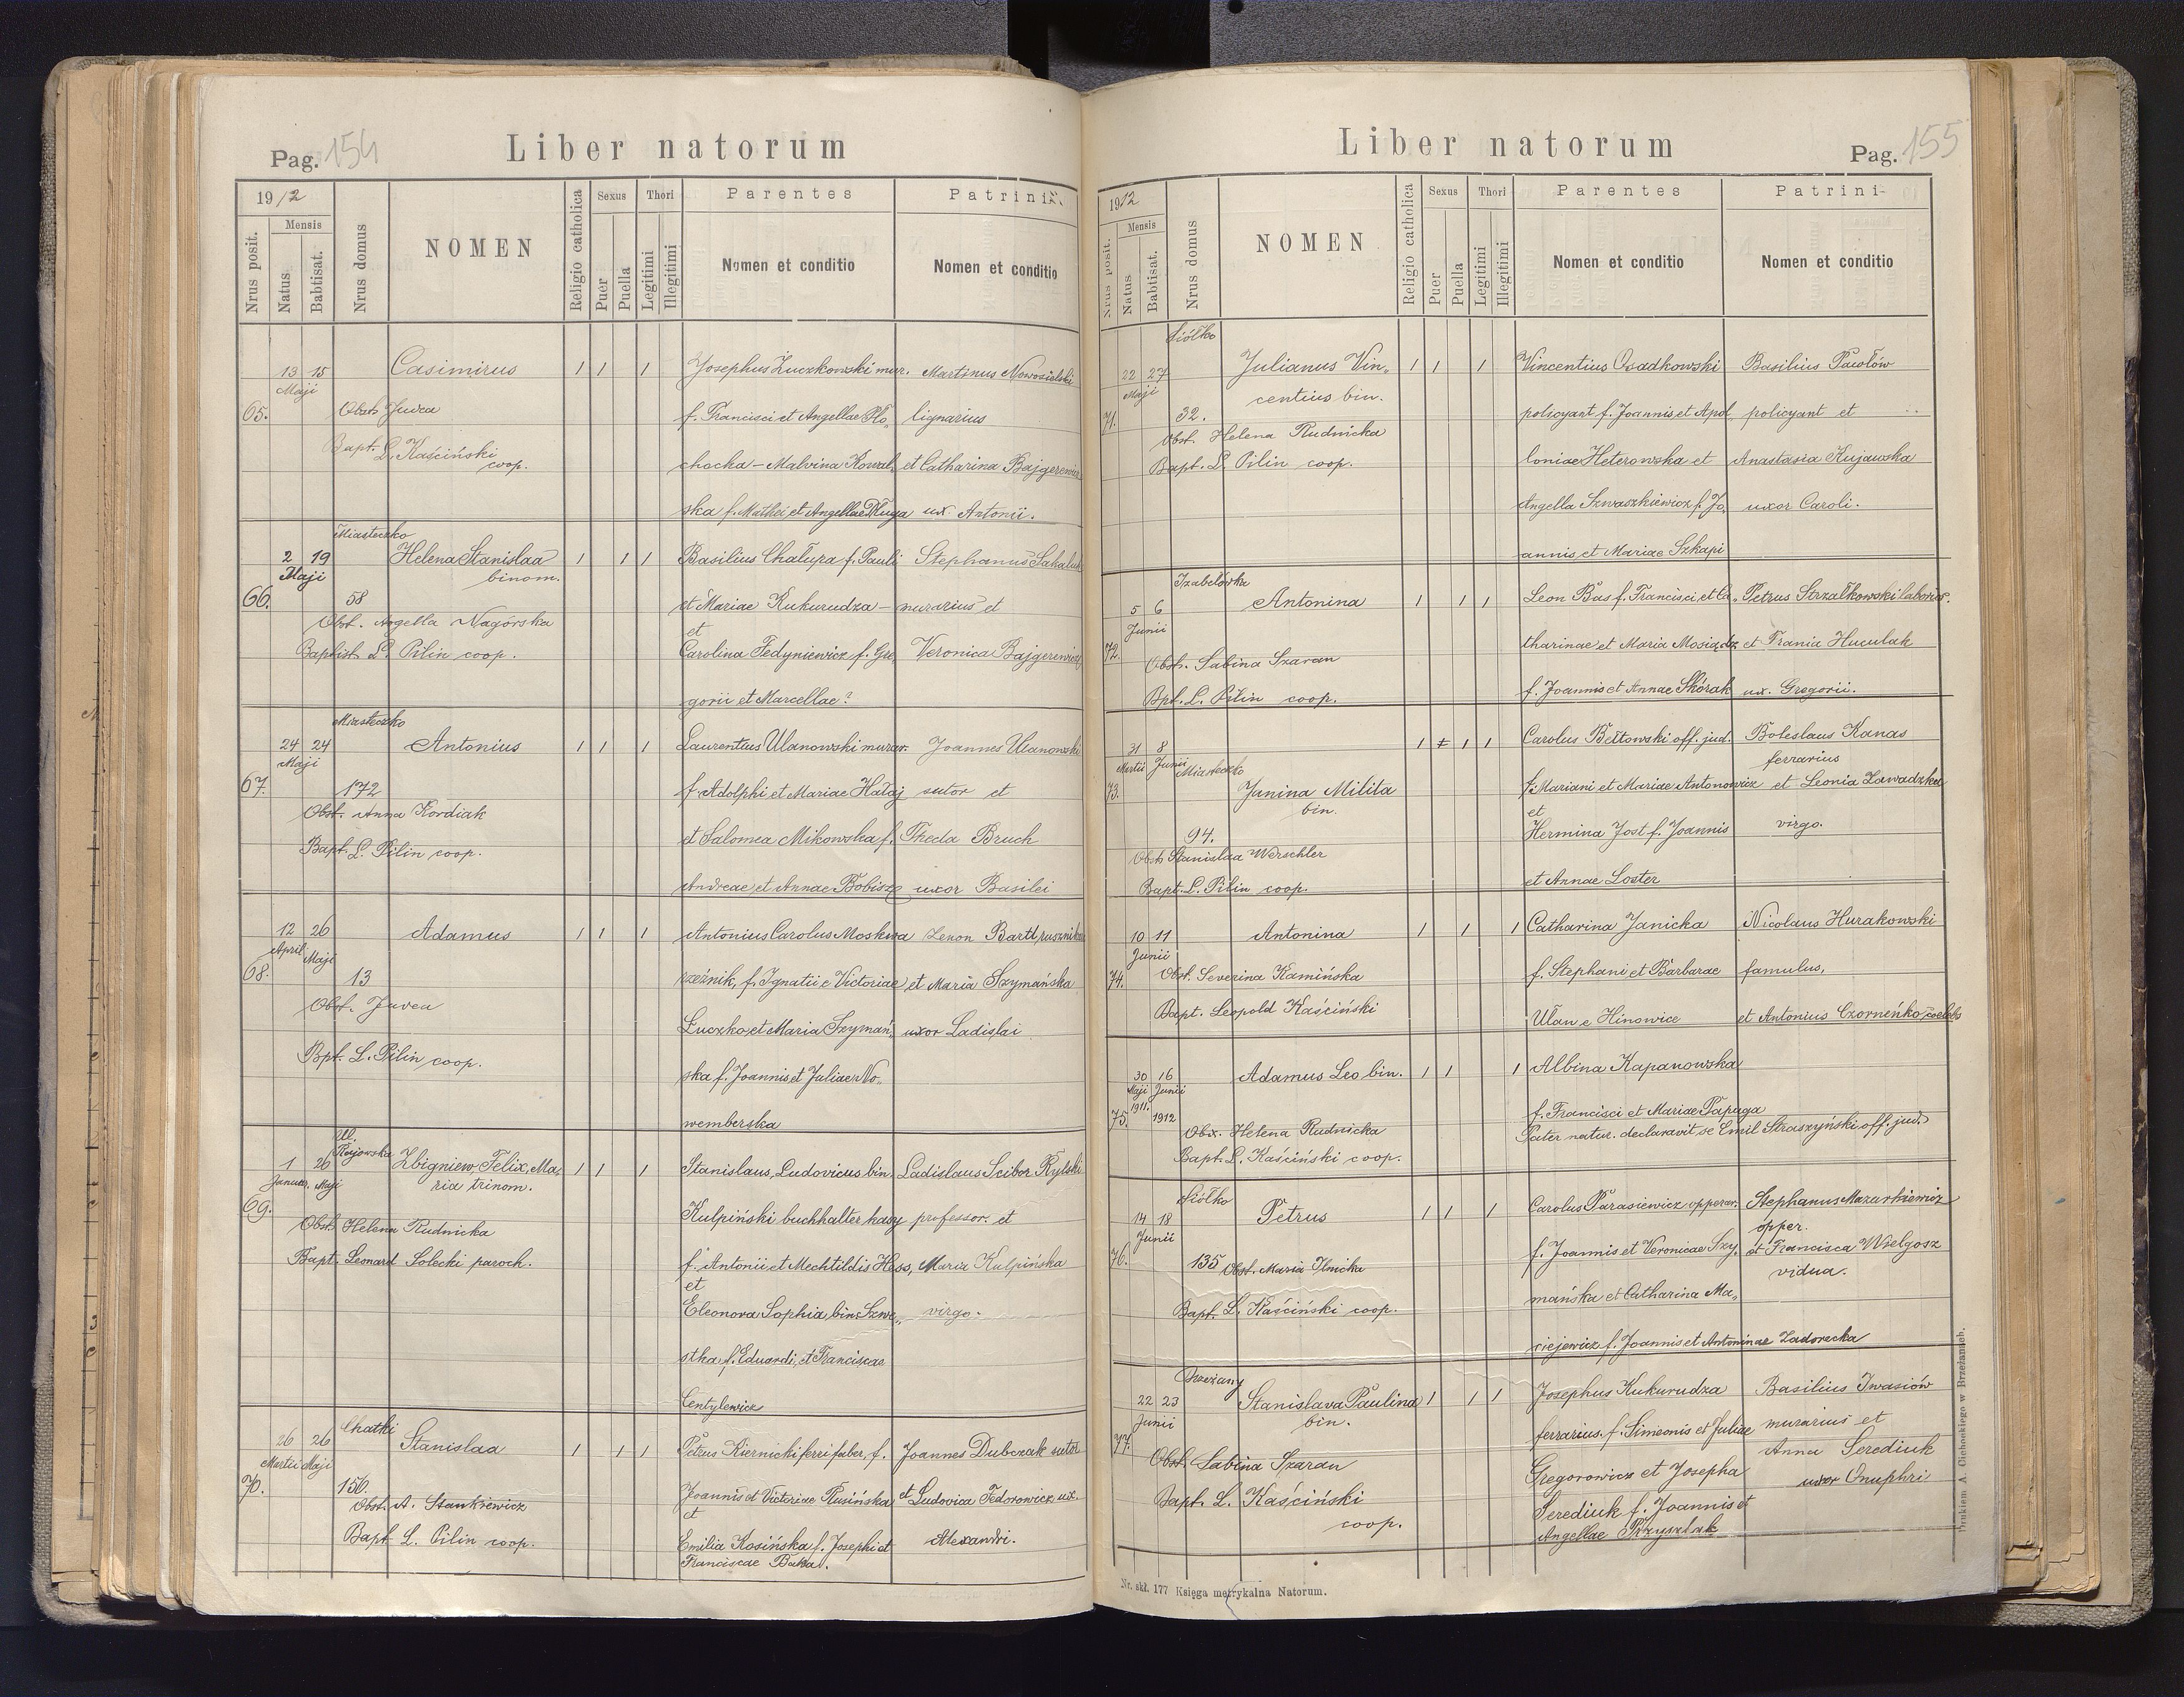 Pag. 154
Liber natorum
1912
Nrus posit.
Mensis
Natus
Babtisat.
Nrus domus
NOMEN
Religio catholica
Sexus
Puer
Puella
Thori
Legitimi
Illegitimi
Parentes
Nomen et conditio
Patrini
Nomen et conditio
65.
13 15
Maji
Casimirus
1 1 1
Obst. Juvea
Bapt. L. Kaściński
coop.
Josephus Łuczkowski mur.
f. Francisci et Angellae Pło„
chocka – Malvina Kowal„
ska f. Mathei et Angellae Długa
Martinus Nowosielski
lignarius
et Catharina Bajgerewicz
ux. Antonii.
66.
Miasteczko
2 19
Maji
58
Helena Stanislaa
binom.
1 1 1
Obst. Angella Nagórska
Baptist. L. Pilin coop.
Basilius Chałupa f. Pauli
et Mariae Kukurudza –
et
Carolina Fedyniewicz f. Gre„
gorii et Marcellae?
Stephanus Sahaluk
murarius et
Veronica Bajgerewicz
67.
Miasteczko
24 24
Maji
172
Antonius
1 1 1
Obst. Anna Kordiak
Bapt. L. Pilin coop.
Laurentius Ulanowski murar.
f. Adolphi et Mariae Hałaj
et Salomea Mikowska f.
Andreae et Annae Bobisz
Joannes Ulanowski
sutor et
Theda Bruch
uxor Basilei
68.
12 26
April Maji
13
Adamus
1 1 1
Obst. Juvea
Bpt. L. Pilin coop.
Antonius Carolus Moskwa
rzeźnik, f. Ignatii e Victoriae
Łuczko et Maria Szymań„
ska f. Joannis et Juliae No„
wemberska
Zenon Bartl, rusznikarz
et Maria Szymańska
uxor Ladislai
69.
Ul.
Rajowska
1 26
Januar. Maji
Zbigniew, Felix, Ma„
ria trinom.
1 1 1
Obst. Helena Rudnicka
Bapt. Leonard Solecki paroch.
Stanislaus, Ludovicus bin.
Kulpiński buchhalter kasy
f. Antonii et Mechtildis Hess,
et
Eleonora Sophia, bin. Szwe„
stka, f. Eduardi, et Franciscae
Centylewicz
Ladislaus Scibor Rylski
professor. et
Maria Kulpińska
virgo.
70.
Chatki
26 26
Martii Maji
150.
Stanislaa
1 1 1
Obst. A. Stankiewicz
Bapt. L. Pilin coop.
Petrus Kiernicki ferri faber, f.
Joannis et Victoriae Rusińska
et
Emilia Kosińska f. Josephi et
Franciscae Bakal.
Joannes Dubczak sutor
et Ludovica Fedorowicz ux.
Alexandri.
Pag. 155
Liber natorum
1912
Nrus posit.
Mensis
Natus
Babtisat.
Nrus domus
NOMEN
Religio catholica
Sexus
Puer
Puella
Thori
Legitimi
Illegitimi
Parentes
Nomen et conditio
Patrini
Nomen et conditio
71.
Siółko
22 27
Maji
32.
Julianus Vin„
centius bin.
1 1 1
Obst. Helena Rudnicka
Bapt. L. Pilin coop.
Vincentius Osadkowski
policyant f. Joannis et Apol„
loniae Heterowska et
Angella Szwaszkiewicz f. Jo„
annis et Mariae Szkapi
Basilius Pawłów
policyant et
Anastasia Kujawska
uxor Caroli.
72.
Izabelówka
5 6
Junii
Antonina
1 1 1
Obst. Sabina Szaran
Bpt. L. Pilin coop.
Leon Bas f. Francisci, et Ca„
tharinae et Maria Mosiądz
f. Joannis et Annae Skórak
Petrus Strzałkowski laborios.
et Frania Huculak
ux. Gregorii.
73.
31 8
Martii Junii
Miasteczko
94.
Janina Milita
bin.
1 1 1
Obst. Stanislaa Werschler
Bapt. L. Pilin coop.
Carolus Bełtowski off. jud.
f. Mariani et Mariae Antonowicz
et
Hermina Jost f. Joannis
et Annae Loster
Boleslaus Kanas
ferrarius
et Leonia Zawadzka
virgo.
74.
10 11
Junii
Antonina
1 1 1
Obst. Severina Kamińska
Bapt. Leopold Kaściński
Catharina Janicka
f. Stephani et Barbarae
Ułan e Hinowice
Nicolaus Hurakowski
famulus,
et Antonius Czorneńko coelebs
75.
30 16
Maji Junii
1911. 1912
Adamus Leo bin.
1 1 1
Obst. Helena Rudnicka
Bapt. L. Kaściński coop.
Albina Kapanowska
f. Francisci et Mariae Papuga
Pater natur. declaravit se Emil Straszyński off. jud.
76.
Siółko
14 18
Junii
135
Petrus
1 1 1
Obst. Maria Ilnicka
Bapt. L. Kaściński coop.
Carolus Parasiewicz opperar.
f. Joannis et Veronicae Szy„
mańska et Catharina Ma„
ciejewicz f. Joannis et Antoninae Zadorecka
Stephanus Mazurkiewicz
opper.
et Francisca Wielgosz
vidua.
77.
Brzeżany
22 23
Junii
Stanislava Paulina
bin.
1 1 1
Obst. Sabina Szaran
Bapt. L. Kaściński
coop.
Josephus Kukurudza
ferrarius. f. Simeonis et Juliae
Gregorowicz et Josepha
Serediuk f. Joannis et
Angellae Przyszlak
Basilius Iwasiów
murarius et
Anna Serediuk
uxor Onuphri
Nr. skł. 177 Księga metrykalna Natorum.
Drukiem A. Cichockiego w Brzeżanach.